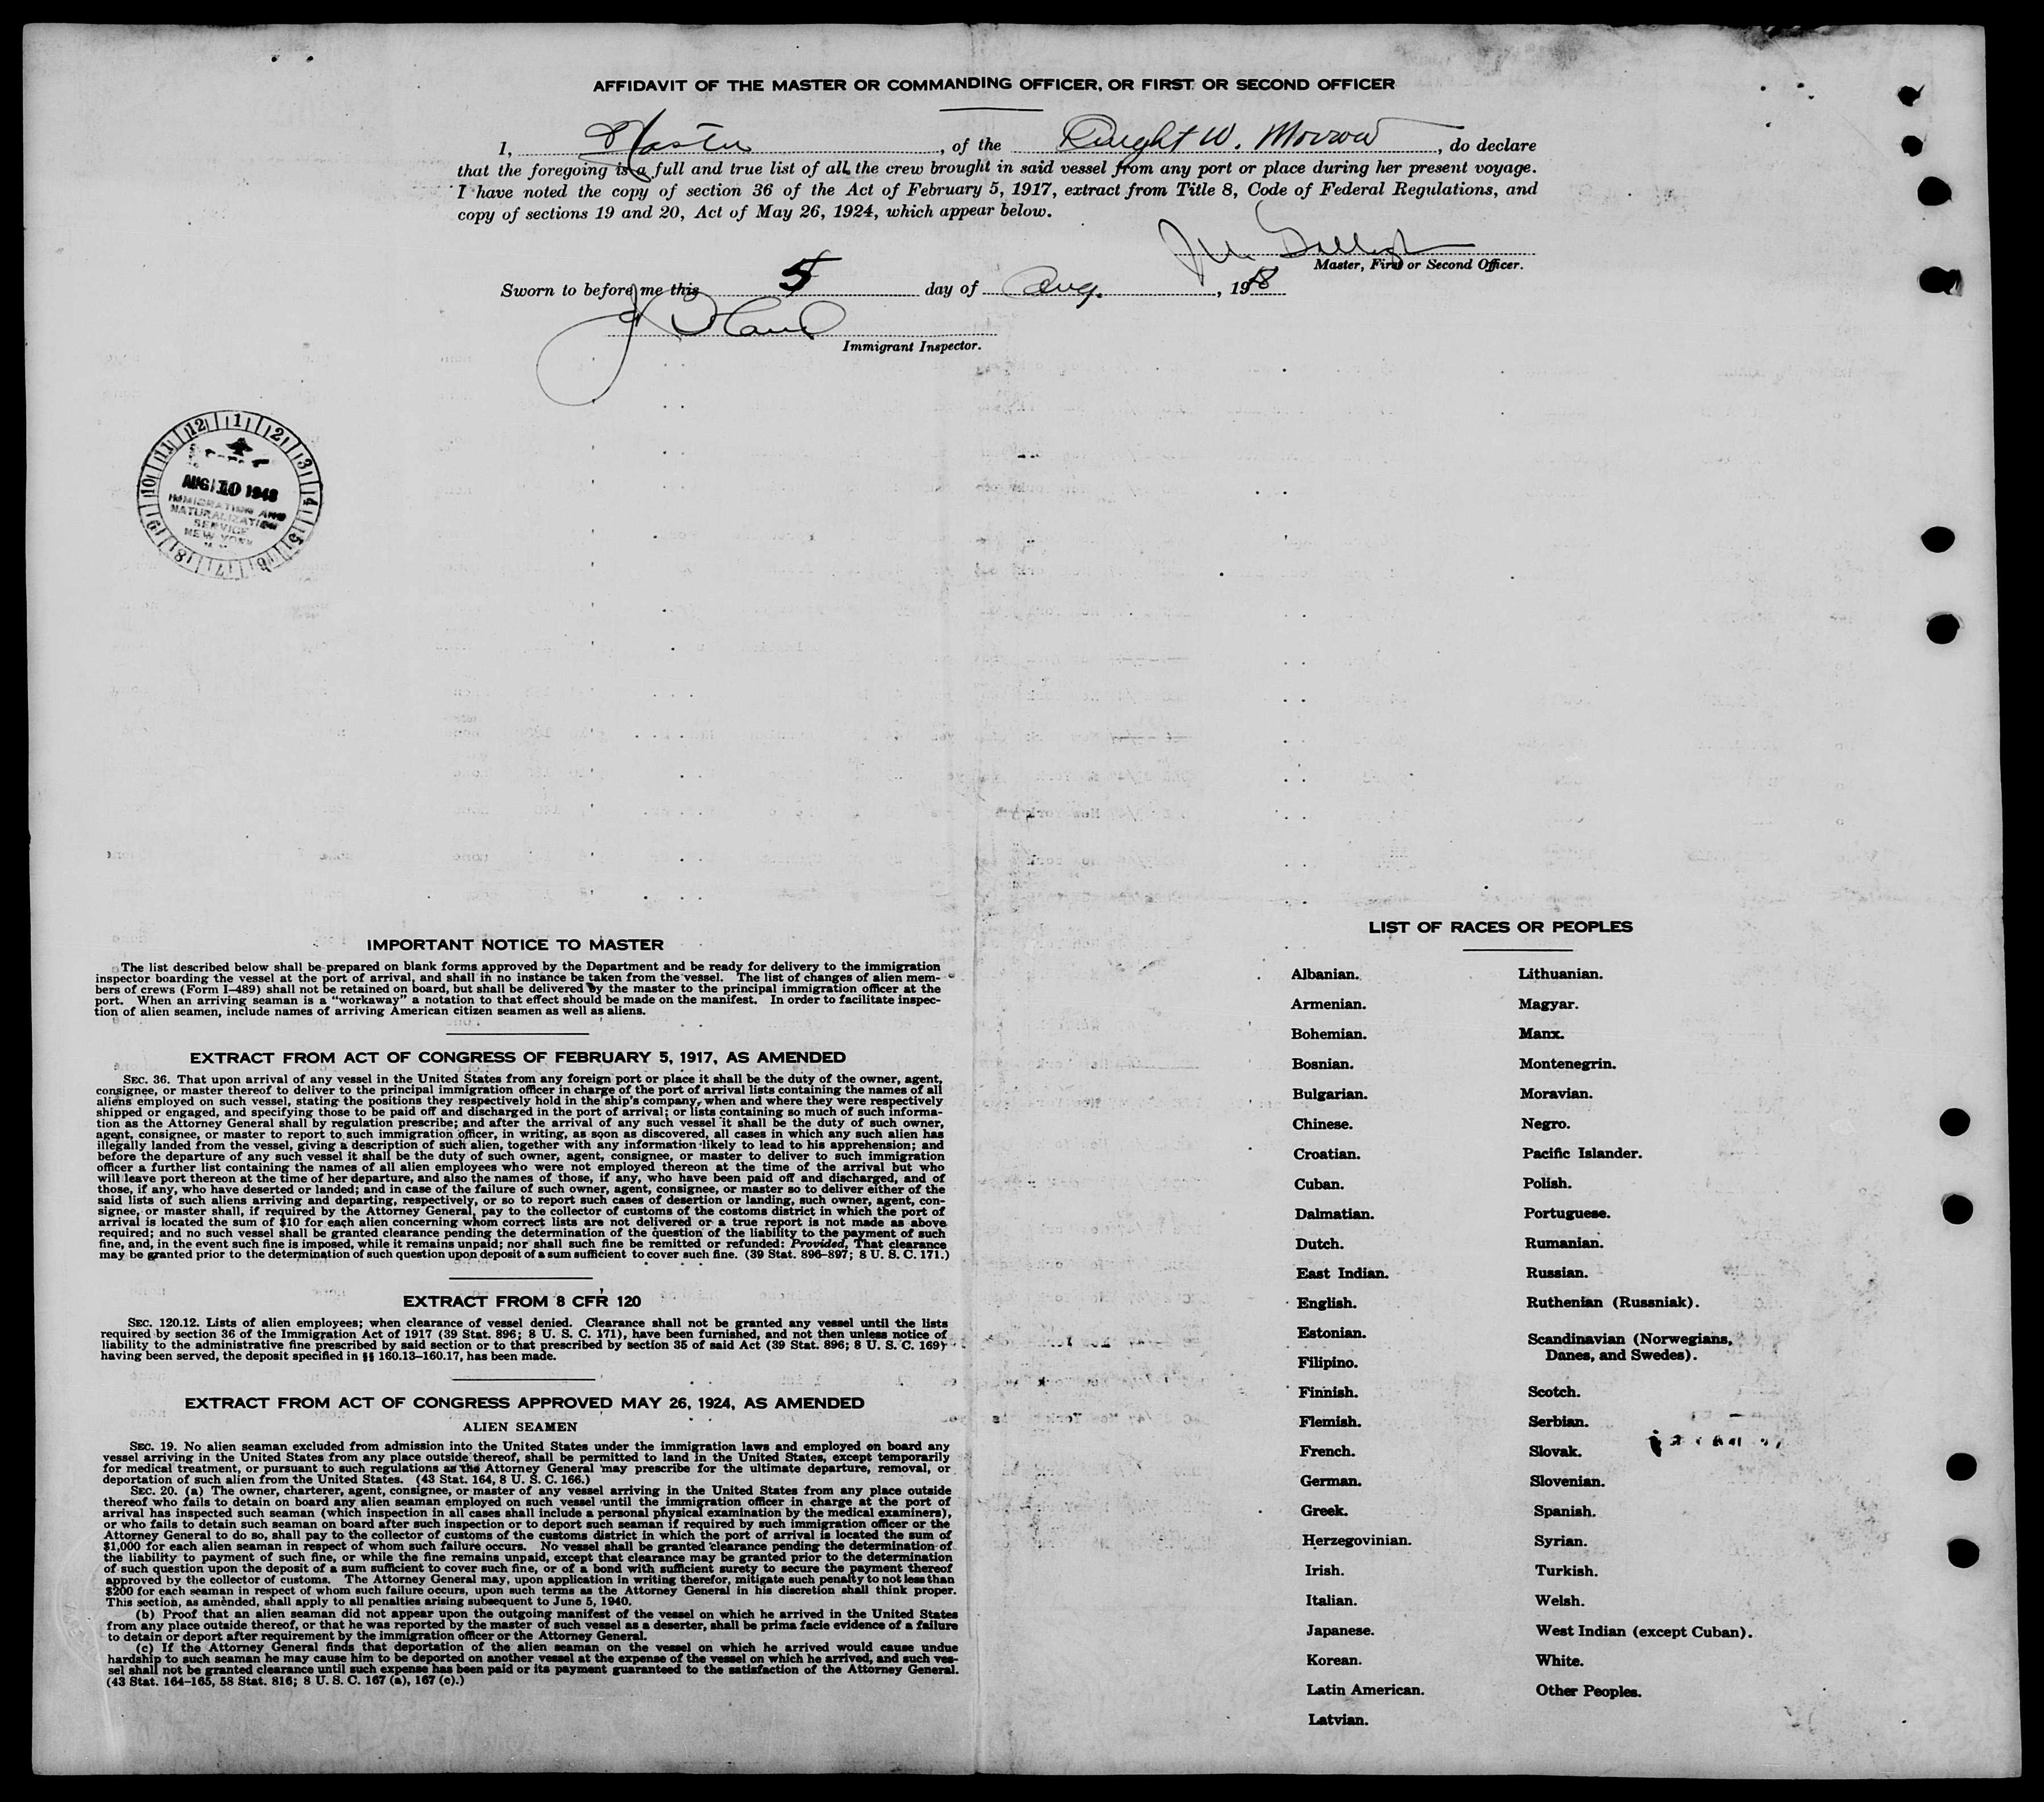 AFFIDAVIT OF THE MASTER OR COMMANDING OFFICER, OR FIRST OR SECOND OFFICER
I, Master, of the Dwight W. Morrow, do declare
that the foregoing is a full and true list of all the crew brought in said vessel from any port or place during her present voyage.
I have noted the copy of section 36 of the Act of February 5, 1917, extract from Title 8, Code of Federal Regulations, and
copy of sections 19 and 20, Act of May 26, 1924, which appear below.
Master, First or Second Officer.
Sworn to before me this 5 day of Aug., 198
Immigrant Inspector.
12 1 2 3 4 5 6 7 8 9 10 11
AUG 10 1948
IMMIGRATION AND
NATURALIZATION
SERVICE
NEW YORK
IMPORTANT NOTICE TO MASTER
The list described below shall be prepared on blank forms approved by the Department and be ready for delivery to the immigration
inspector boarding the vessel at the port of arrival, and shall in no instance be taken from the vessel. The list of changes of alien mem-
bers of crews (Form I-489) shall not be retained on board, but shall be delivered by the master to the principal immigration officer at the
port. When an arriving seaman is a "workaway" a notation to that effect should be made on the manifest. In order to facilitate inspec-
tion of alien seamen, include names of arriving American citizen seamen as well as aliens.
EXTRACT FROM ACT OF CONGRESS OF FEBRUARY 5, 1917, AS AMENDED
SEC. 36. That upon arrival of any vessel in the United States from any foreign port or place it shall be the duty of the owner, agent,
consignee, or master thereof to deliver to the principal immigration officer in charge of the port of arrival lists containing the names of all
aliens employed on such vessel, stating the positions they respectively hold in the ship's company, when and where they were respectively
shipped or engaged, and specifying those to be paid off and discharged in the port of arrival; or lists containing so much of such informa-
tion as the Attorney General shall by regulation prescribe; and after the arrival of any such vessel it shall be the duty of such owner,
agent, consignee, or master to report to such immigration officer, in writing, as soon as discovered, all cases in which any such alien has
illegally landed from the vessel, giving a description of such alien, together with any information likely to lead to his apprehension; and
before the departure of any such vessel it shall be the duty of such owner, agent, consignee, or master to deliver to such immigration
officer a further list containing the names of all alien employees who were not employed thereon at the time of the arrival but who
will leave port thereon at the time of her departure, and also the names of those, if any, who have been paid off and discharged, and of
those, if any, who have deserted or landed; and in case of the failure of such owner, agent, consignee, or master so to deliver either of the
said lists of such aliens arriving and departing, respectively, or so to report such cases of desertion or landing, such owner, agent, con-
signee, or master shall, if required by the Attorney General, pay to the collector of customs of the customs district in which the port of
arrival is located the sum of $10 for each alien concerning whom correct lists are not delivered or a true report is not made as above
required; and no such vessel shall be granted clearance pending the determination of the question of the liability to the payment of such
fine, and, in the event such fine is imposed, while it remains unpaid; nor shall such fine be remitted or refunded: Provided, That clearance
may be granted prior to the determination of such question upon deposit of a sum sufficient to cover such fine. (39 Stat. 896-897; 8 U. S. C. 171.)
EXTRACT FROM 8 CFR 120
SEC. 120.12. Lists of alien employees; when clearance of vessel denied. Clearance shall not be granted any vessel until the lists
required by section 36 of the Immigration Act of 1917 (39 Stat. 896; 8 U. S. C. 171), have been furnished, and not then unless notice of
liability to the administrative fine prescribed by said section or to that prescribed by section 35 of said Act (39 Stat. 896; 8 U. S. C. 169)
having been served, the deposit specified in §§ 160.13-160.17, has been made.
EXTRACT FROM ACT OF CONGRESS APPROVED MAY 26, 1924, AS AMENDED
ALIEN SEAMEN
SEC. 19. No alien seaman excluded from admission into the United States under the immigration laws and employed on board any
vessel arriving in the United States from any place outside thereof, shall be permitted to land in the United States, except temporarily
for medical treatment, or pursuant to such regulations as the Attorney General may prescribe for the ultimate departure, removal, or
deportation of such alien from the United States. (43 Stat. 164, 8 U. S. C. 166.)
SEC. 20. (a) The owner, charterer, agent, consignee, or master of any vessel arriving in the United States from any place outside
thereof who fails to detain on board any alien seaman employed on such vessel until the immigration officer in charge at the port of
arrival has inspected such seaman (which inspection in all cases shall include a personal physical examination by the medical examiners),
or who fails to detain such seaman on board after such inspection or to deport such seaman if required by such immigration officer or the
Attorney General to do so, shall pay to the collector of customs of the customs district in which the port of arrival is located the sum of
$1,000 for each alien seaman in respect of whom such failure occurs. No vessel shall be granted clearance pending the determination of
the liability to payment of such fine, or while the fine remains unpaid, except that clearance may be granted prior to the determination
of such question upon the deposit of a sum sufficient to cover such fine, or of a bond with sufficient surety to secure the payment thereof
approved by the collector of customs. The Attorney General may, upon application in writing therefor, mitigate such penalty to not less than
$200 for each seaman in respect of whom such failure occurs, upon such terms as the Attorney General in his discretion shall think proper.
This section, as amended, shall apply to all penalties arising subsequent to June 5, 1940.
(b) Proof that an alien seaman did not appear upon the outgoing manifest of the vessel on which he arrived in the United States
from any place outside thereof, or that he was reported by the master of such vessel as a deserter, shall be prima facie evidence of a failure
to detain or deport after requirement by the immigration officer or the Attorney General.
(c) If the Attorney General finds that deportation of the alien seaman on the vessel on which he arrived would cause undue
hardship to such seaman he may cause him to be deported on another vessel at the expense of the vessel on which he arrived, and such ves-
sel shall not be granted clearance until such expense has been paid or its payment guaranteed to the satisfaction of the Attorney General.
(43 Stat. 164-165, 58 Stat. 816; 8 U. S. C. 167 (a), 167 (c).)
LIST OF RACES OR PEOPLES
Albanian.
Armenian.
Bohemian.
Bosnian.
Bulgarian.
Chinese.
Croatian.
Cuban.
Dalmatian.
Dutch.
East Indian.
English.
Estonian.
Filipino.
Finnish.
Flemish.
French.
German.
Greek.
Herzegovinian.
Irish.
Italian.
Japanese.
Korean.
Latin American.
Latvian.
Lithuanian.
Magyar.
Manx.
Montenegrin.
Moravian.
Negro.
Pacific Islander.
Polish.
Portuguese.
Rumanian.
Russian.
Ruthenian (Russniak).
Scandinavian (Norwegians,
Danes, and Swedes).
Scotch.
Serbian.
Slovak.
Slovenian.
Spanish.
Syrian.
Turkish.
Welsh.
West Indian (except Cuban).
White.
Other Peoples.